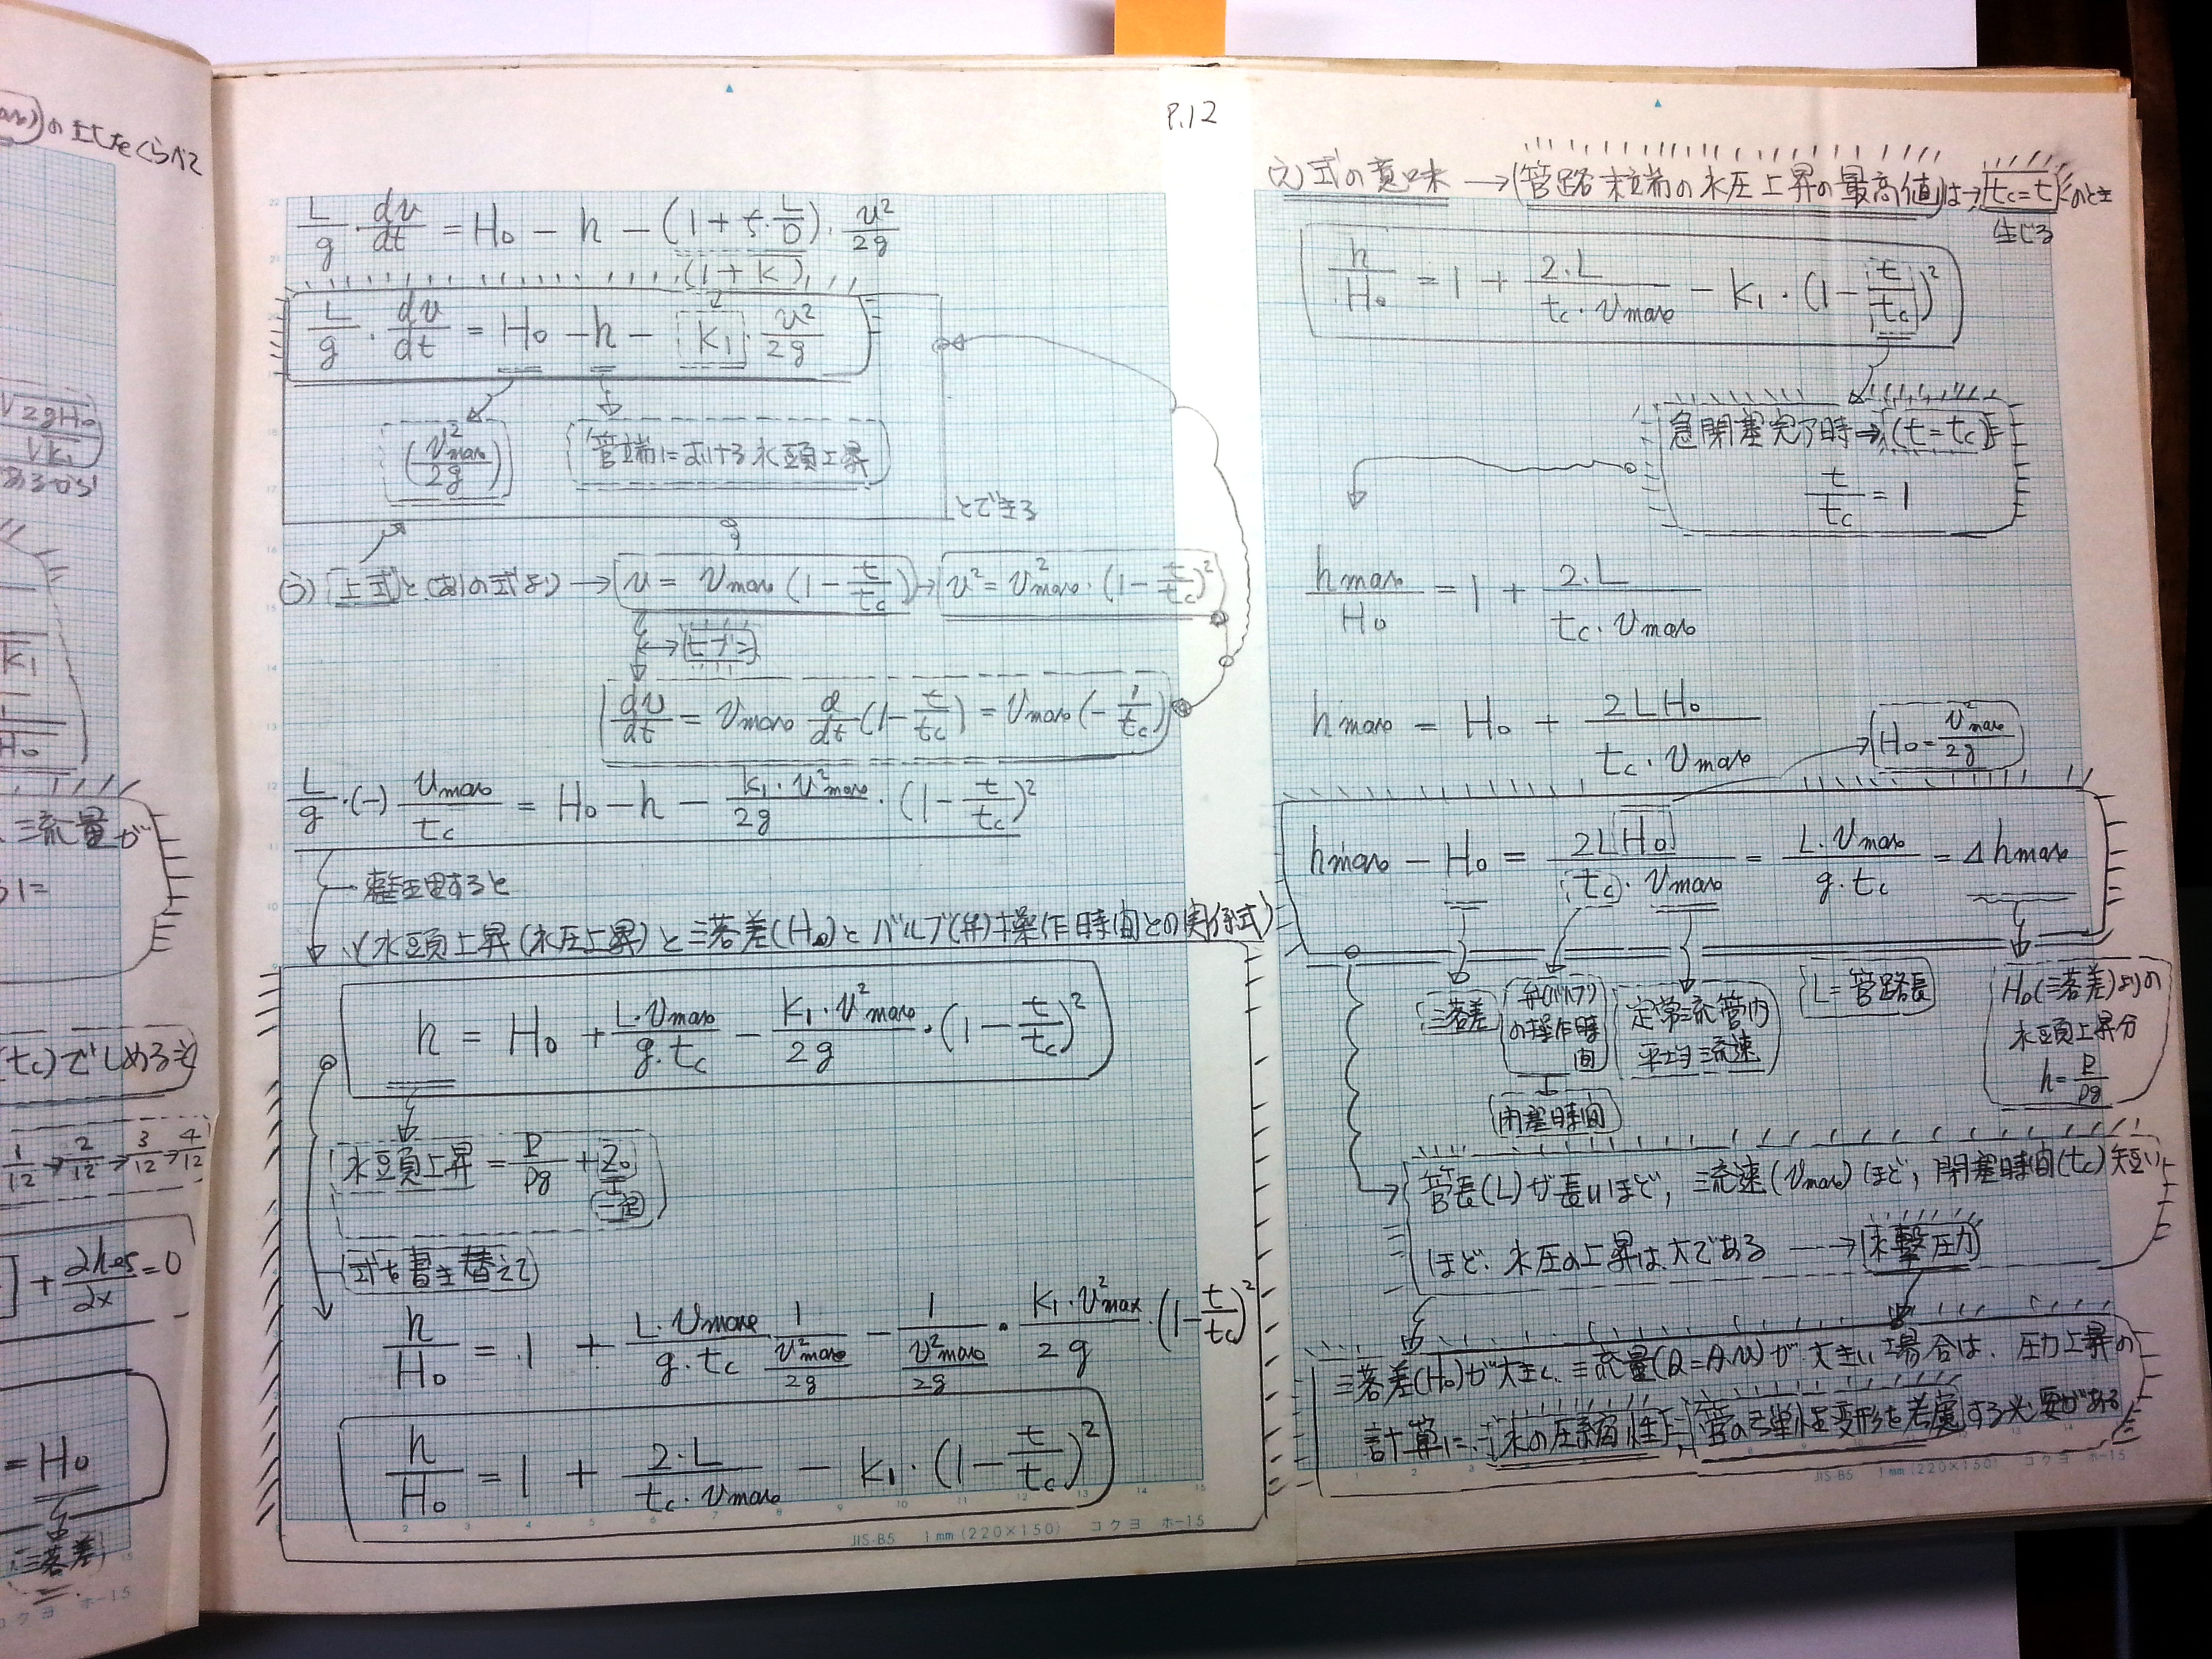 P.12
の式をくらべて
√2gH₀
√K₁
流量が
(tc)でしめると
1/12→2/12→3/12→4/12
=H₀
落差
L/g・dv/dt=H₀-h-(1+f・L/D)・v²/2g
(1+K)
L/g・dv/dt=H₀-h-K₁・v²/2g
(v²max/2g)
管端における水頭上昇
とできる
う)上式と(あ)の式より→v=vmax(1-t/tc)→v²=v²max・(1-t/tc)²
dv/dt=vmax d/dt(1-t/tc)=vmax(-1/tc)
L/g・(-)vmax/tc=H₀-h-K₁・v²max/2g・(1-t/tc)²
整理すると
(水頭上昇(水圧上昇)と落差(H₀)とバルブ(弁)操作時間との関係式)
h=H₀+L・vmax/g・tc-K₁・v²max/2g・(1-t/tc)²
水頭上昇=P/ρg+Z₀
一定
式を書き替えて
h/H₀=1+L・vmax/g・tc・1/(v²max/2g)-1/(v²max/2g)・K₁・v²max/2g・(1-t/tc)²
h/H₀=1+2・L/tc・vmax-K₁・(1-t/tc)²
JIS-B5 1mm(220×150) コクヨ ホ-15
え)式の意味→(管路末端の水圧上昇の最高値)は→(tc=t)のとき
生じる
h/H₀=1+2・L/tc・vmax-K₁・(1-t/tc)²
急閉塞完了時→(t=tc)
t/tc=1
hmax/H₀=1+2・L/tc・vmax
hmax=H₀+2LH₀/tc・vmax
H₀=v²max/2g
hmax-H₀=2LH₀/tc・vmax=L・vmax/g・tc=Δhmax
落差
弁(バルブ)
の操作時
間
閉塞時間
定常流管内
平均流速
L=管路長
H₀(落差)よりの
水頭上昇分
h=P/ρg
管長(L)が長いほど,流速(vmax)ほど,閉塞時間(tc)短い
ほど、水圧の上昇は大である→水撃圧力
落差(H₀)が大きく、流量(Q=A・v)が大きい場合は、圧力上昇の
計算に、水の圧縮性と、管の弾性変形を考慮する必要がある
JIS-B5 1mm(220×150) コクヨ ホ-15